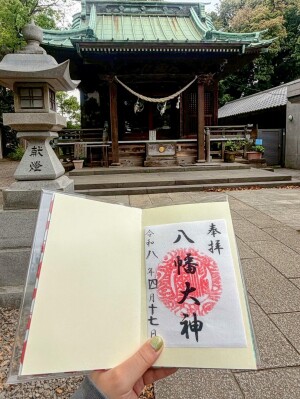 奉拝
八幡大神
令和八年四月十七日
献燈